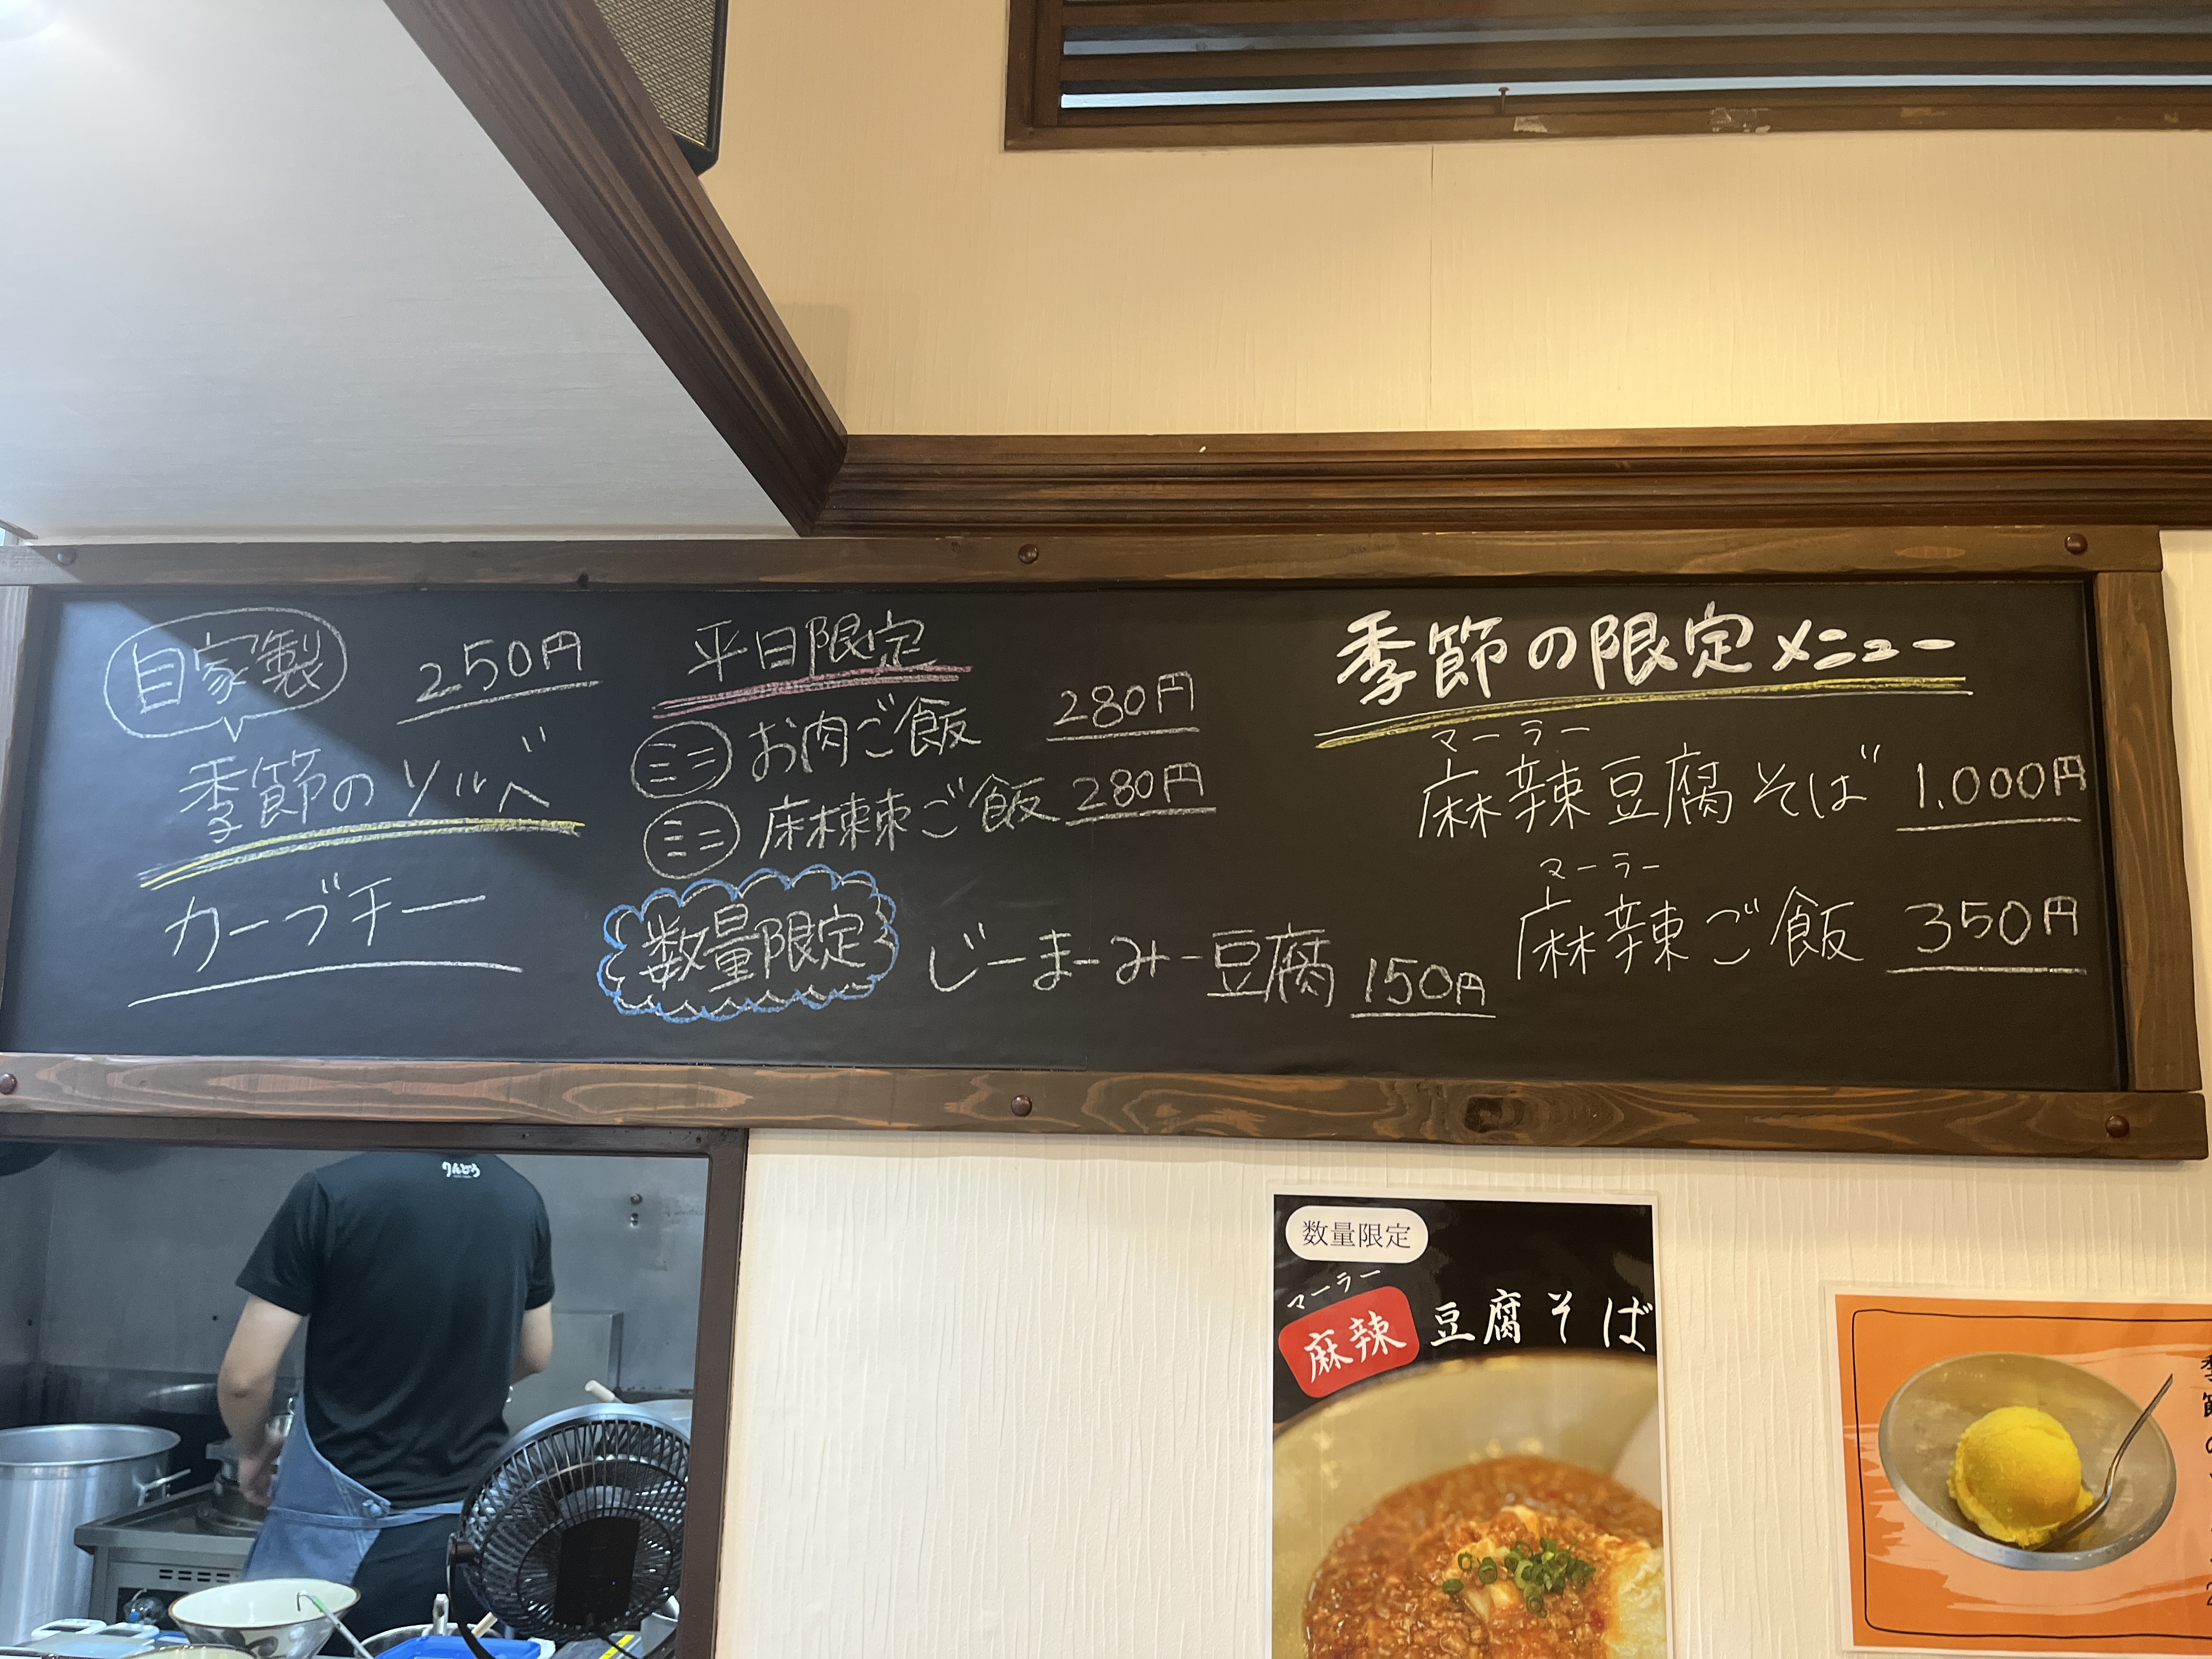 自家製
250円
季節のソルベ
カーブチー
平日限定
ミニ お肉ご飯 280円
ミニ 麻辣ご飯 280円
数量限定 じーまーみー豆腐 150円
季節の限定メニュー
マーラー
麻辣豆腐そば 1,000円
マーラー
麻辣ご飯 350円
りんどう
数量限定
マーラー
麻辣 豆腐そば
季節の